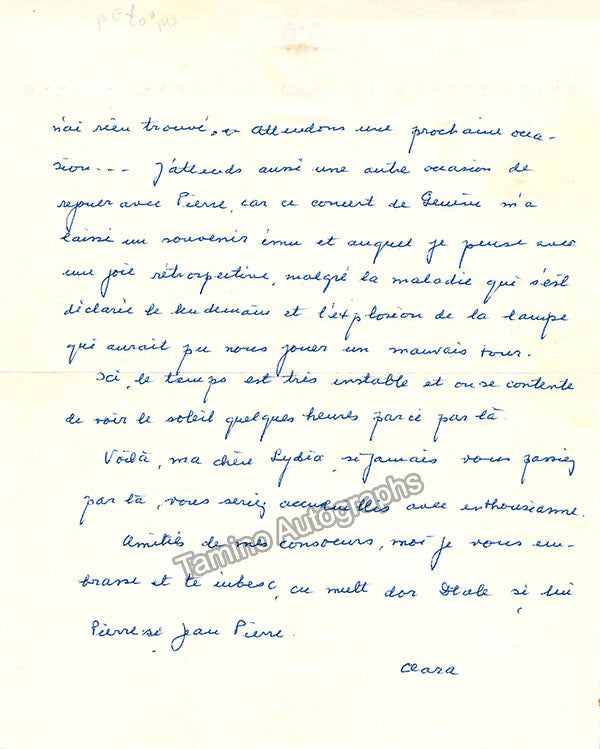 n'ai rien trouvé, attendons une prochaine occa-
sion... J'attends aussi une autre occasion de
rejouer avec Pierre, car ce concert de Genève m'a
laissé un souvenir ému et auquel je pense avec
une joie rétrospective, malgré la maladie qui s'est
déclarée le lendemain et l'explosion de la lampe
qui aurait pu nous jouer un mauvais tour.
Ici, le temps est très instable et on se contente
de voir le soleil quelques heures par ci par là.
Voilà, ma chère Lydia, si jamais vous passiez
par là, vous seriez accueillies avec enthousiasme.
Amitiés de mes consoeurs, moi je vous em-
brasse et te iubesc, cu mult dor Dtale si lui
Pierre si Jean Pierre.
Clara
Tamino Autographs